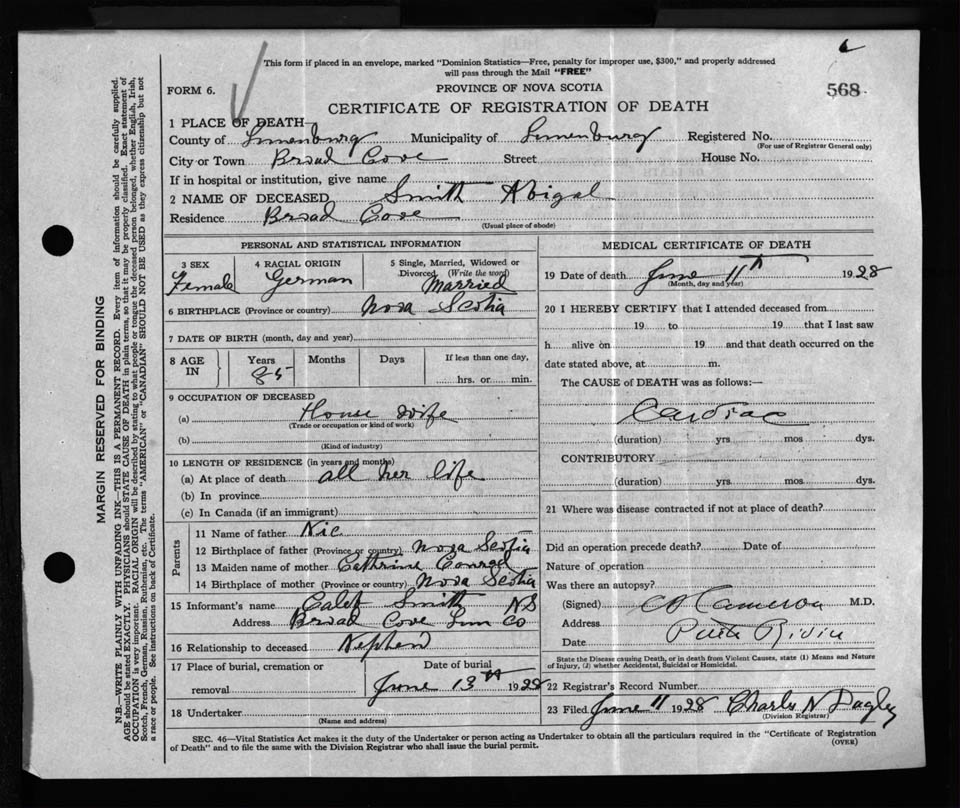 This form if placed in an envelope, marked "Dominion Statistics—Free, penalty for improper use, $300," and properly addressed
will pass through the Mail "FREE"
FORM 6.
PROVINCE OF NOVA SCOTIA
568
CERTIFICATE OF REGISTRATION OF DEATH
1 PLACE OF DEATH—
County of Lunenburg Municipality of Lunenburg Registered No.
(For use of Registrar General only)
City or Town Broad Cove Street House No.
If in hospital or institution, give name
2 NAME OF DECEASED Smith Abigal
Residence Broad Cove
(Usual place of abode)
MARGIN RESERVED FOR BINDING
N.B.—WRITE PLAINLY WITH UNFADING INK—THIS IS A PERMANENT RECORD. Every item of information should be carefully supplied.
AGE should be stated EXACTLY. PHYSICIANS should STATE CAUSE OF DEATH in plain terms, so that it may be properly classified. Exact statement of
OCCUPATION is very important. RACIAL ORIGIN will be described by stating to what people or tongue the deceased person belonged, whether English, Irish,
Scotch, French, German, Russian, Ruthenian, etc. The terms "AMERICAN" or "CANADIAN" SHOULD NOT BE USED as they express citizenship but not
a race or people. See instructions on back of Certificate.
PERSONAL AND STATISTICAL INFORMATION
3 SEX
Female
4 RACIAL ORIGIN
German
5 Single, Married, Widowed or
Divorced (Write the word)
Married
6 BIRTHPLACE (Province or country) Nova Scotia
7 DATE OF BIRTH (month, day and year)
8 AGE IN
Years Months Days If less than one day,
85 hrs. or min.
9 OCCUPATION OF DECEASED
(a) House Wife
(Trade or occupation or kind of work)
(b)
(Kind of industry)
10 LENGTH OF RESIDENCE (in years and months)
(a) At place of death all her life
(b) In province
(c) In Canada (if an immigrant)
Parents
11 Name of father Nic
12 Birthplace of father (Province or country) Nova Scotia
13 Maiden name of mother Cathrine Conrad
14 Birthplace of mother (Province or country) Nova Scotia
15 Informant's name Caleb Smith NS
Address Broad Cove Lun Co
16 Relationship to deceased Nephew
17 Place of burial, cremation or Date of burial
removal June 13th 1928
18 Undertaker
(Name and address)
MEDICAL CERTIFICATE OF DEATH
19 Date of death June 11th 1928
(Month, day and year)
20 I HEREBY CERTIFY that I attended deceased from
19 to 19 that I last saw
h alive on 19 and that death occurred on the
date stated above, at m.
The CAUSE of DEATH was as follows:—
Cardiac
(duration) yrs. mos dys.
CONTRIBUTORY
(duration) yrs. mos. dys.
21 Where was disease contracted if not at place of death?
Did an operation precede death? Date of
Nature of operation
Was there an autopsy?
(Signed) Cameron M.D.
Address
Date
State the Disease causing Death, or in death from Violent Causes, state (1) Means and Nature
of Injury, (2) whether Accidental, Suicidal or Homicidal.
22 Registrar's Record Number
23 Filed June 11 1928 Charles N Dagley
(Division Registrar)
SEC. 46—Vital Statistics Act makes it the duty of the Undertaker or person acting as Undertaker to obtain all the particulars required in the "Certificate of Registration
of Death" and to file the same with the Division Registrar who shall issue the burial permit.
(OVER)